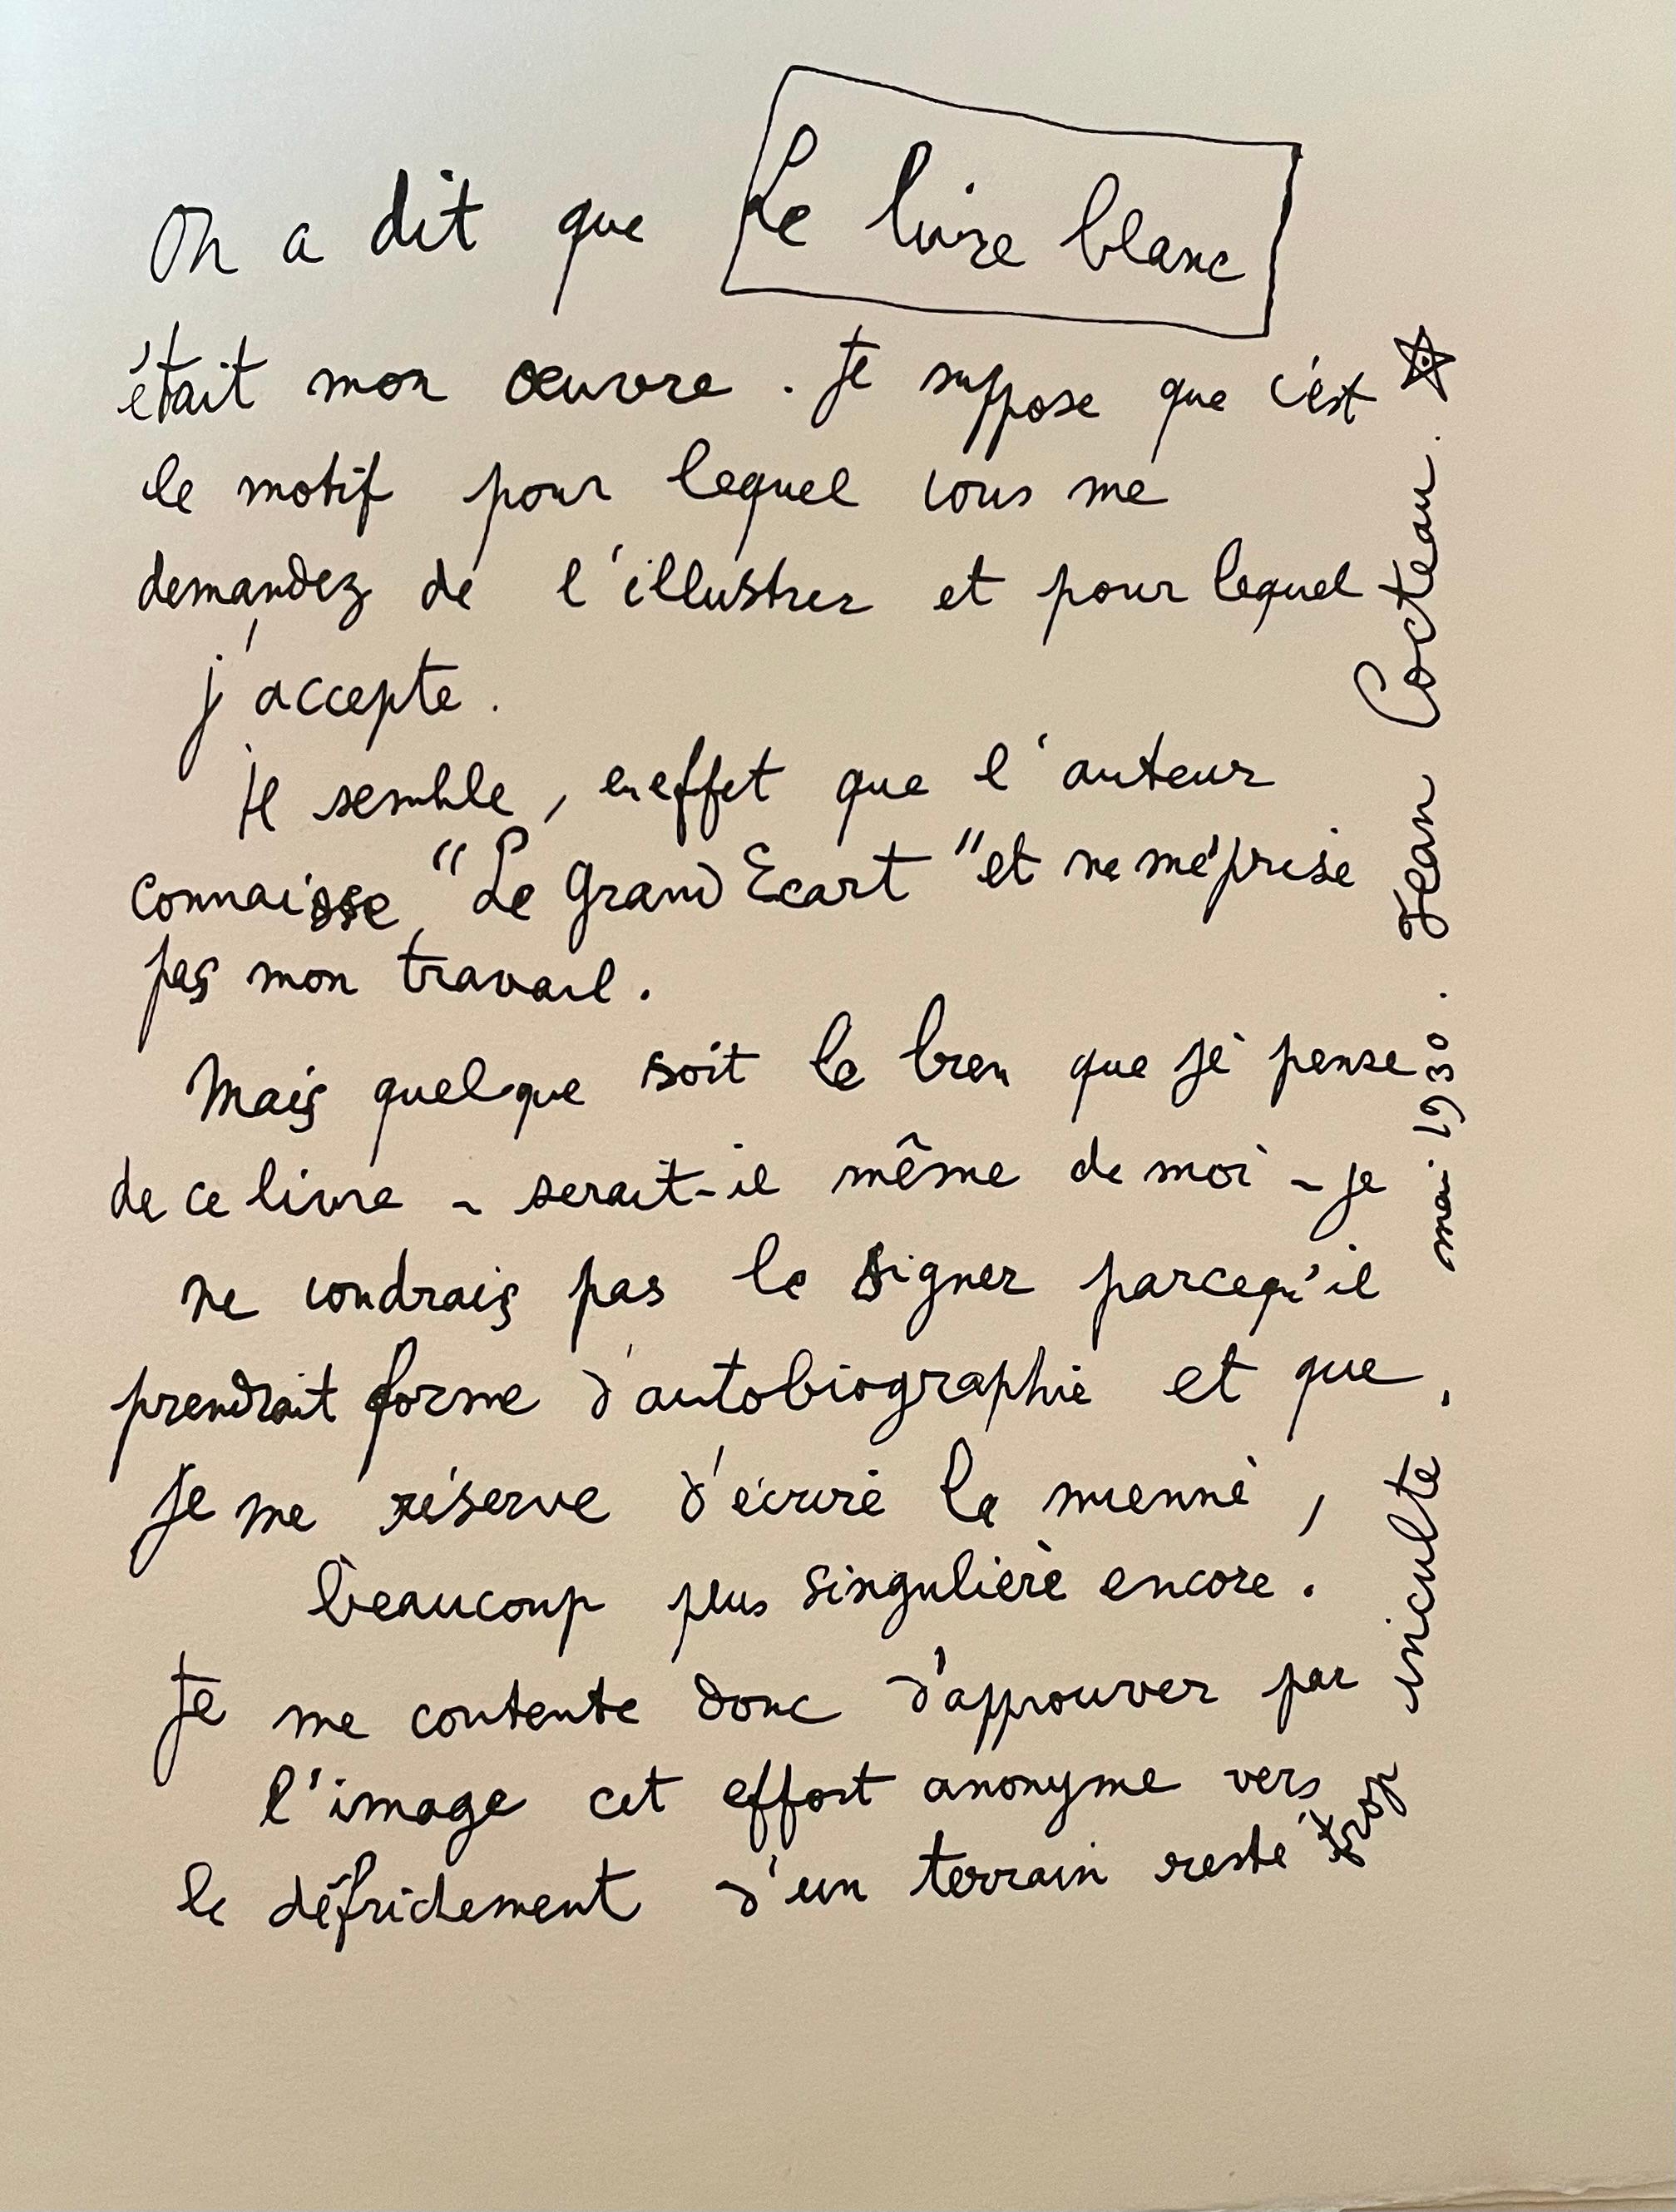 On a dit que Le livre blanc
était mon œuvre. Je suppose que c'est
le motif pour lequel vous me
demandez de l'illustrer et pour lequel
j'accepte.
Il semble, en effet que l'auteur
connaisse "Le Grand Ecart" et ne méprise
pas mon travail.
Mais quelque soit le bien que je pense
de ce livre - serait-il même de moi - je
ne voudrais pas le signer parcequ'il
prendrait forme d'autobiographie et que
je me réserve d'écrire la mienne,
beaucoup plus singulière encore.
Je me contente donc d'approuver par
l'image cet effort anonyme vers
le défrichement d'un terrain resté trop
inculte.
mai 1930. Jean Cocteau.